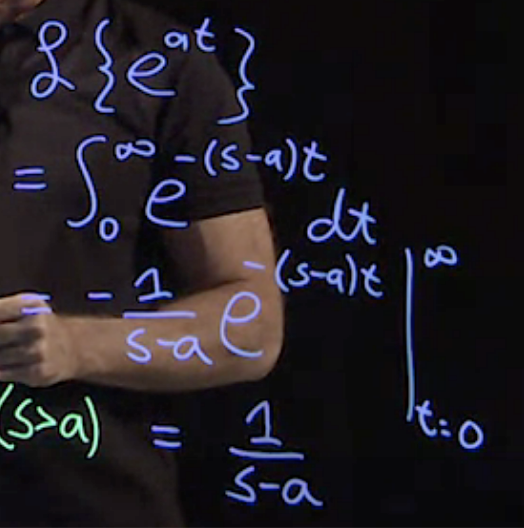 ℒ{e^{at}}
= ∫_0^∞ e^{-(s-a)t} dt
= - 1/(s-a) e^{-(s-a)t} |_{t=0}^∞
(s>a) = 1/(s-a)